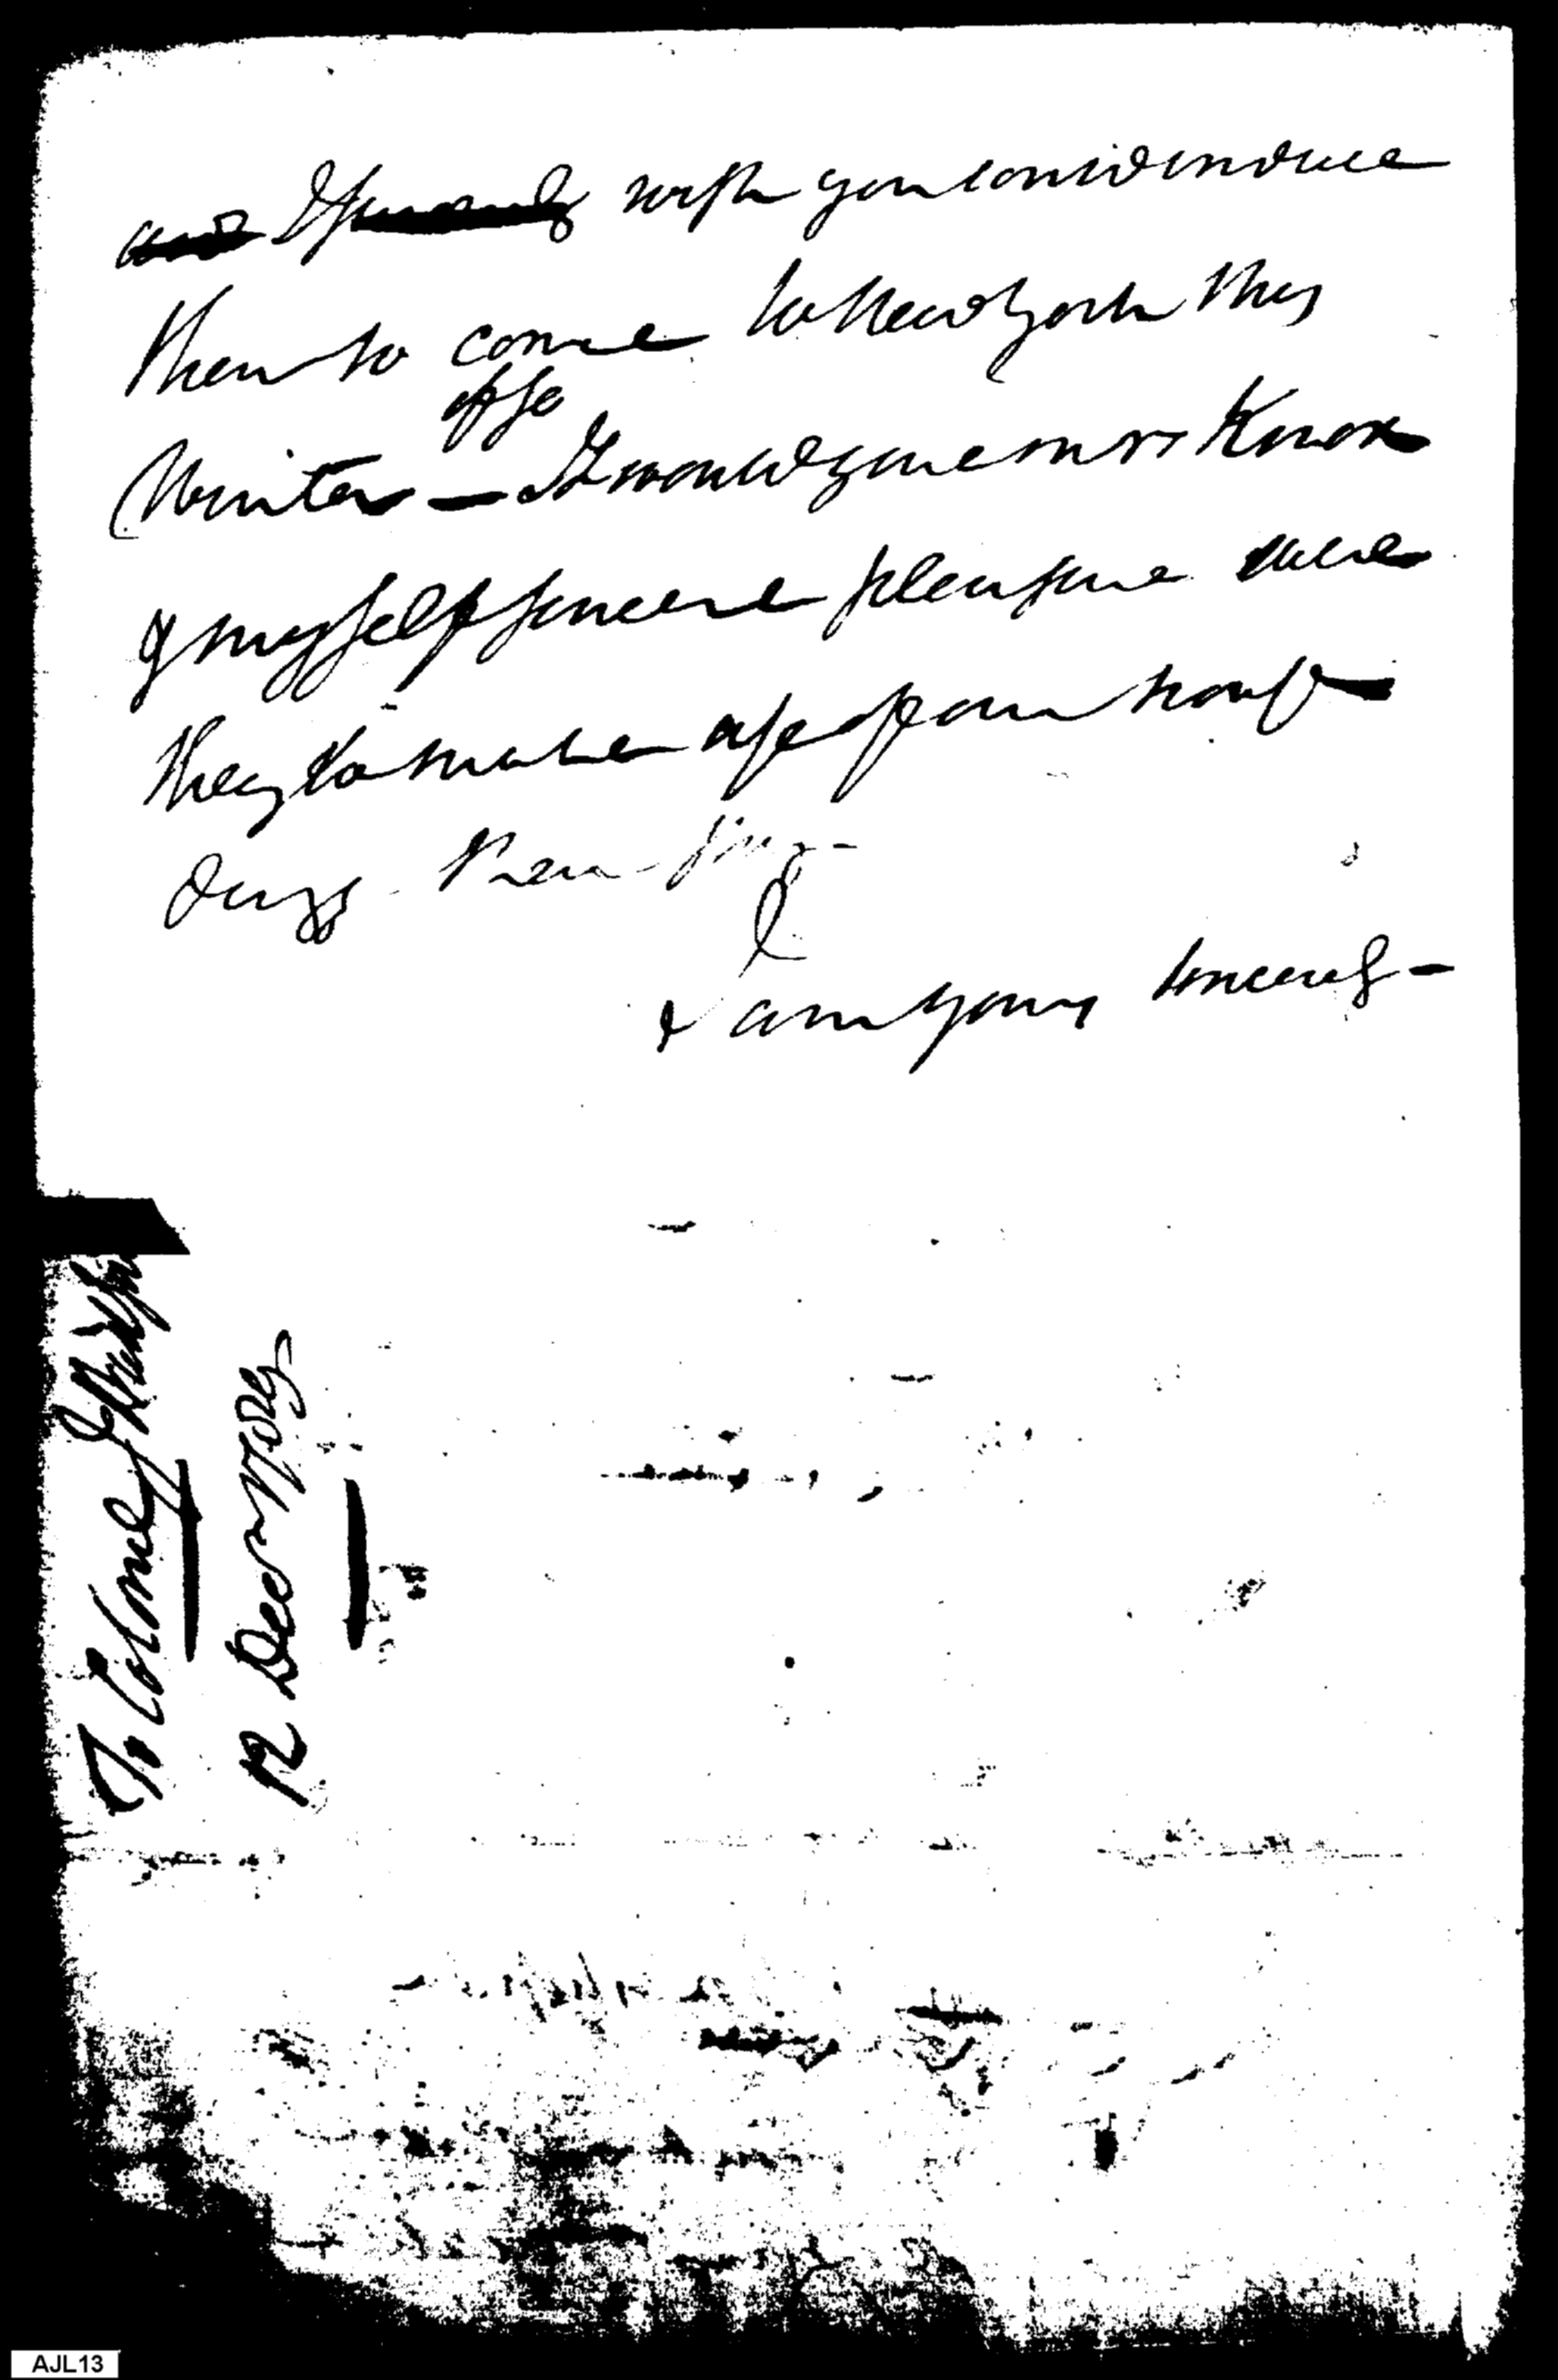 and I wish you could induce
them to come to New York this
Winter — if so It would give mrs Knox
& myself sincere pleasure were
they to make use of our house
During their
I
& am yours sincerely —
To Colonel
12 Decr 1789
AJL13